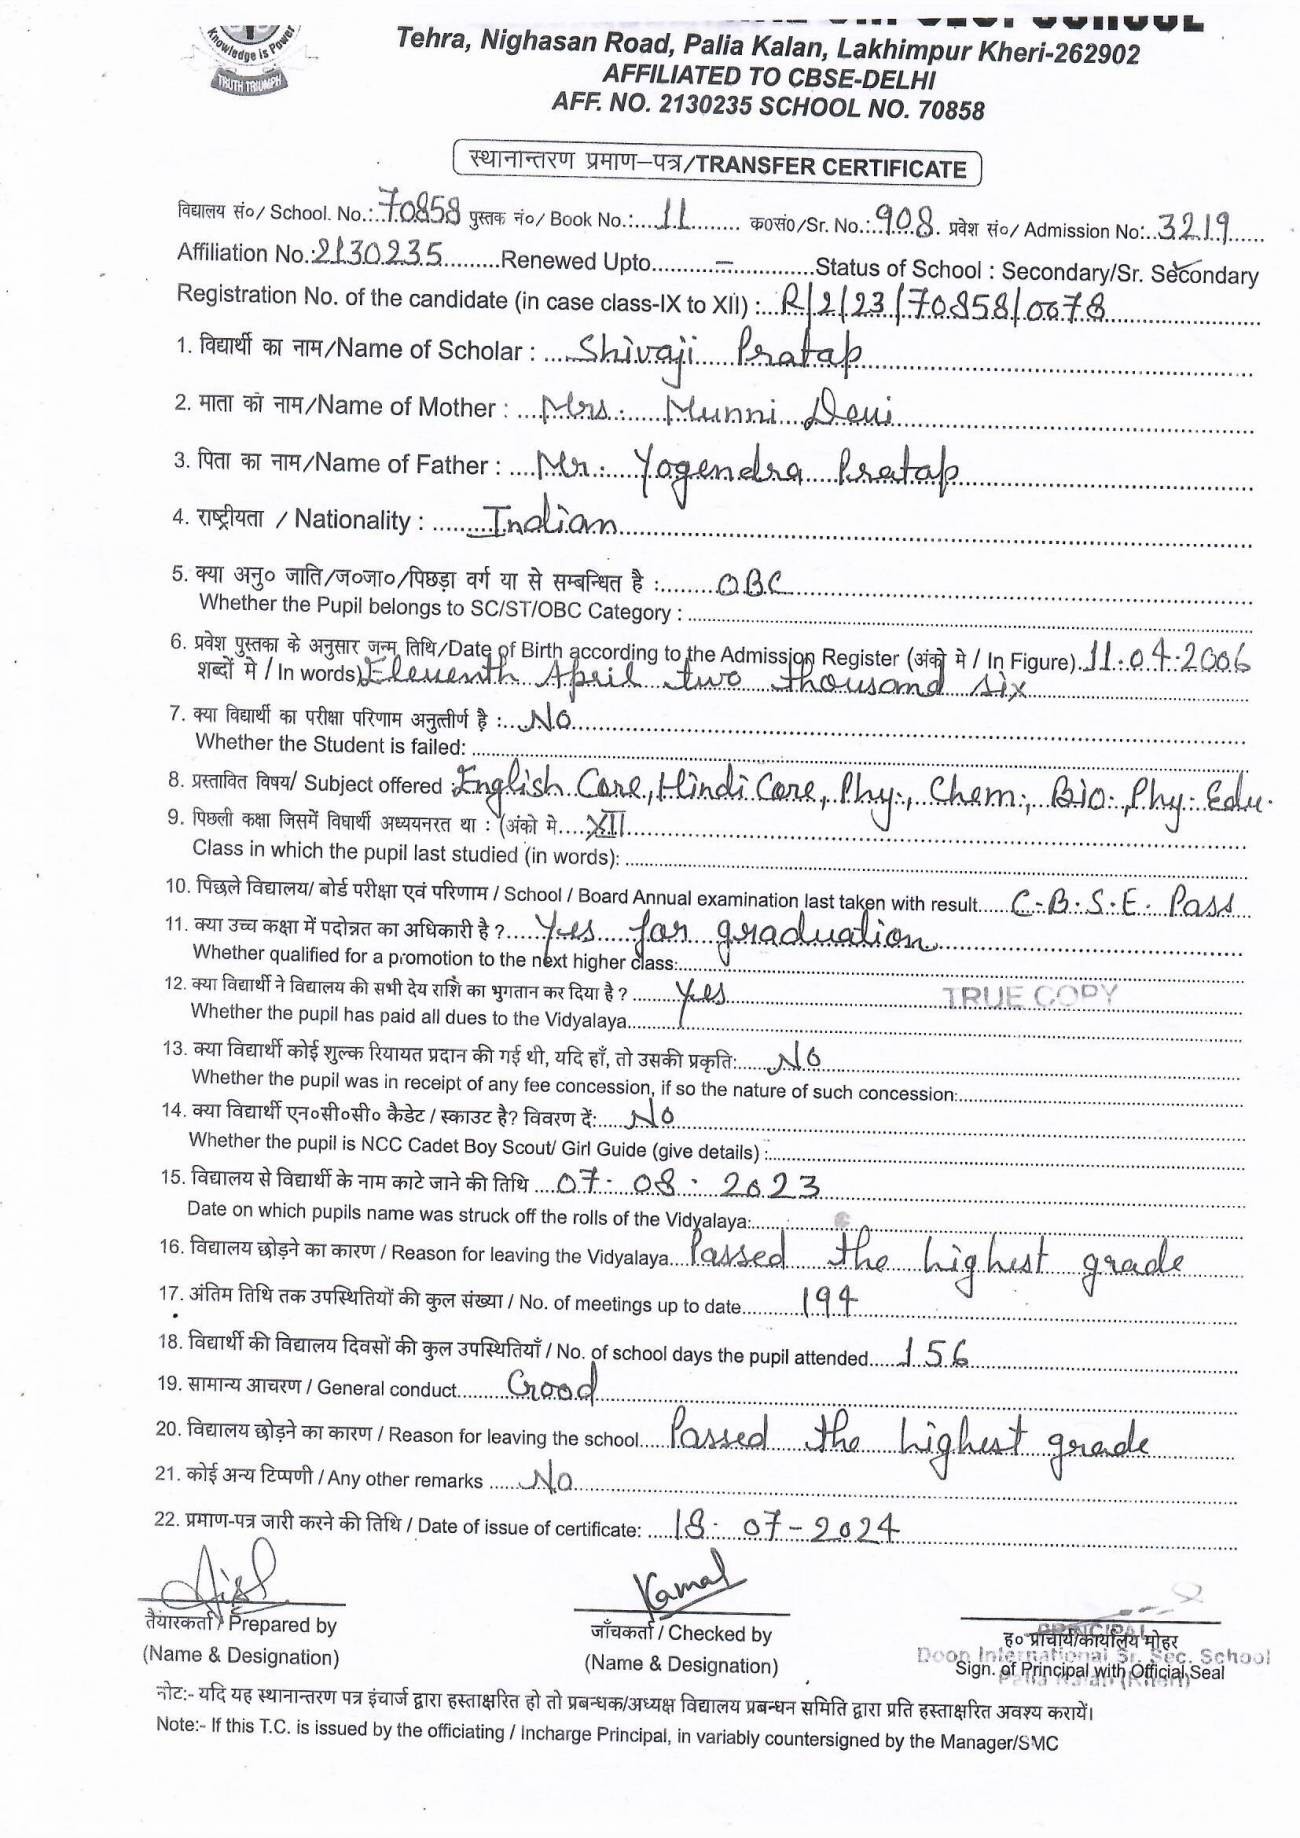 Knowledge is Power
TRUTH TRIUMPH
SCHOOL
Tehra, Nighasan Road, Palia Kalan, Lakhimpur Kheri-262902
AFFILIATED TO CBSE-DELHI
AFF. NO. 2130235 SCHOOL NO. 70858
स्थानान्तरण प्रमाण–पत्र/TRANSFER CERTIFICATE
विद्यालय सं०/ School. No.: 70858 पुस्तक नं०/ Book No.: 11 क०सं०/Sr. No.: 908. प्रवेश सं०/ Admission No: 3219
Affiliation No.: 2130235 Renewed Upto – Status of School : Secondary/Sr. Secondary
Registration No. of the candidate (in case class-IX to XII) : R/2/23/70858/0078
1. विद्यार्थी का नाम/Name of Scholar : Shivaji Pratap
2. माता का नाम/Name of Mother : Mrs. Munni Devi
3. पिता का नाम/Name of Father : Mr. Yogendra Pratap
4. राष्ट्रीयता / Nationality : Indian
5. क्या अनु० जाति/ज०जा०/पिछड़ा वर्ग या से सम्बन्धित है : OBC
Whether the Pupil belongs to SC/ST/OBC Category :
6. प्रवेश पुस्तका के अनुसार जन्म तिथि/Date of Birth according to the Admission Register (अंको मे / In Figure). 11.04.2006
शब्दों मे / In words) Eleventh April two thousand six
7. क्या विद्यार्थी का परीक्षा परिणाम अनुत्तीर्ण है : No
Whether the Student is failed:
8. प्रस्तावित विषय/ Subject offered : English Core, Hindi Core, Phy., Chem., Bio., Phy. Edu.
9. पिछली कक्षा जिसमें विधार्थी अध्ययनरत था : (अंको मे XII
Class in which the pupil last studied (in words):
10. पिछले विद्यालय/ बोर्ड परीक्षा एवं परिणाम / School / Board Annual examination last taken with result C.B.S.E. Pass
11. क्या उच्च कक्षा में पदोन्नत का अधिकारी है ? Yes for graduation
Whether qualified for a promotion to the next higher class:
12. क्या विद्यार्थी ने विद्यालय की सभी देय राशि का भुगतान कर दिया है ? Yes
TRUE COPY
Whether the pupil has paid all dues to the Vidyalaya
13. क्या विद्यार्थी कोई शुल्क रियायत प्रदान की गई थी, यदि हाँ, तो उसकी प्रकृति: No
Whether the pupil was in receipt of any fee concession, if so the nature of such concession:
14. क्या विद्यार्थी एन०सी०सी० कैडेट / स्काउट है? विवरण दें: No
Whether the pupil is NCC Cadet Boy Scout/ Girl Guide (give details) :
15. विद्यालय से विद्यार्थी के नाम काटे जाने की तिथि 07.08.2023
Date on which pupils name was struck off the rolls of the Vidyalaya:
16. विद्यालय छोड़ने का कारण / Reason for leaving the Vidyalaya Passed the highest grade
17. अंतिम तिथि तक उपस्थितियों की कुल संख्या / No. of meetings up to date 194
18. विद्यार्थी की विद्यालय दिवसों की कुल उपस्थितियाँ / No. of school days the pupil attended 156
19. सामान्य आचरण / General conduct Good
20. विद्यालय छोड़ने का कारण / Reason for leaving the school Passed the highest grade
21. कोई अन्य टिप्पणी / Any other remarks No
22. प्रमाण-पत्र जारी करने की तिथि / Date of issue of certificate: 18.07-2024
Kamal
तैयारकर्ता / Prepared by
(Name & Designation)
जाँचकर्ता / Checked by
(Name & Designation)
PRINCIPAL
ह० प्राचार्य/कार्यालय मोहर
Doon International Sr. Sec. School
Sign. of Principal with Official Seal
Palia Kalan (Kheri)
नोट:- यदि यह स्थानान्तरण पत्र इंचार्ज द्वारा हस्ताक्षरित हो तो प्रबन्धक/अध्यक्ष विद्यालय प्रबन्धन समिति द्वारा प्रति हस्ताक्षरित अवश्य करायें।
Note:- If this T.C. is issued by the officiating / Incharge Principal, in variably countersigned by the Manager/SMC